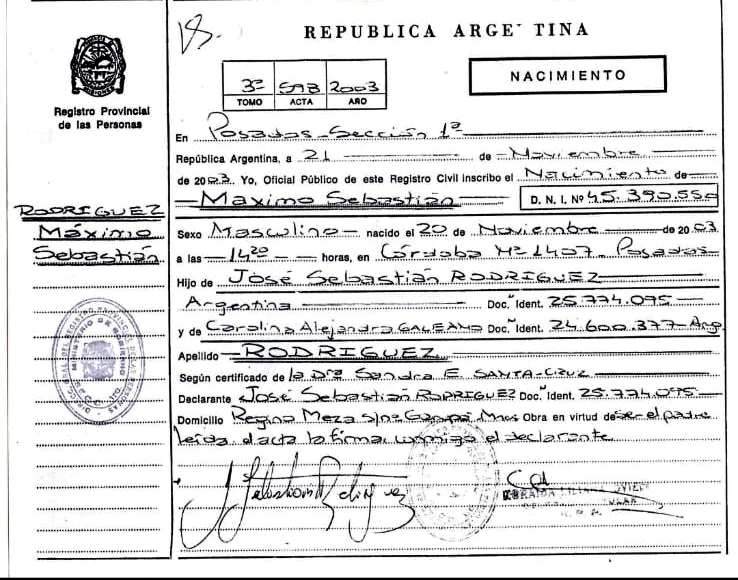 18.
REPUBLICA ARGENTINA
3º 598 2003
TOMO ACTA AÑO
NACIMIENTO
Registro Provincial
de las Personas
En Posadas - Sección 1ª
República Argentina, a 21 de Noviembre
de 2003. Yo, Oficial Público de este Registro Civil inscribo el Nacimiento de
Maximo Sebastián D. N. I. Nº 45.390.550
RODRIGUEZ
Máximo
Sebastián
Sexo Masculino nacido el 20 de Noviembre de 2003
a las 14:20 horas, en Córdoba Nº 1407 - Posadas
Hijo de José Sebastián RODRIGUEZ
Argentina Doc. Ident. 25.774.095
y de Carolina Alejandra GALEANO Doc. Ident. 24.600.377 - Arg.
Apellido RODRIGUEZ
Según certificado de la Dra Sandra E. SANTA-CRUZ
Declarante José Sebastián RODRIGUEZ Doc. Ident. 25.774.095
Domicilio Regina Meza s/nº Mnes Obra en virtud de ser el padre
leída el acta la firma conmigo el declarante